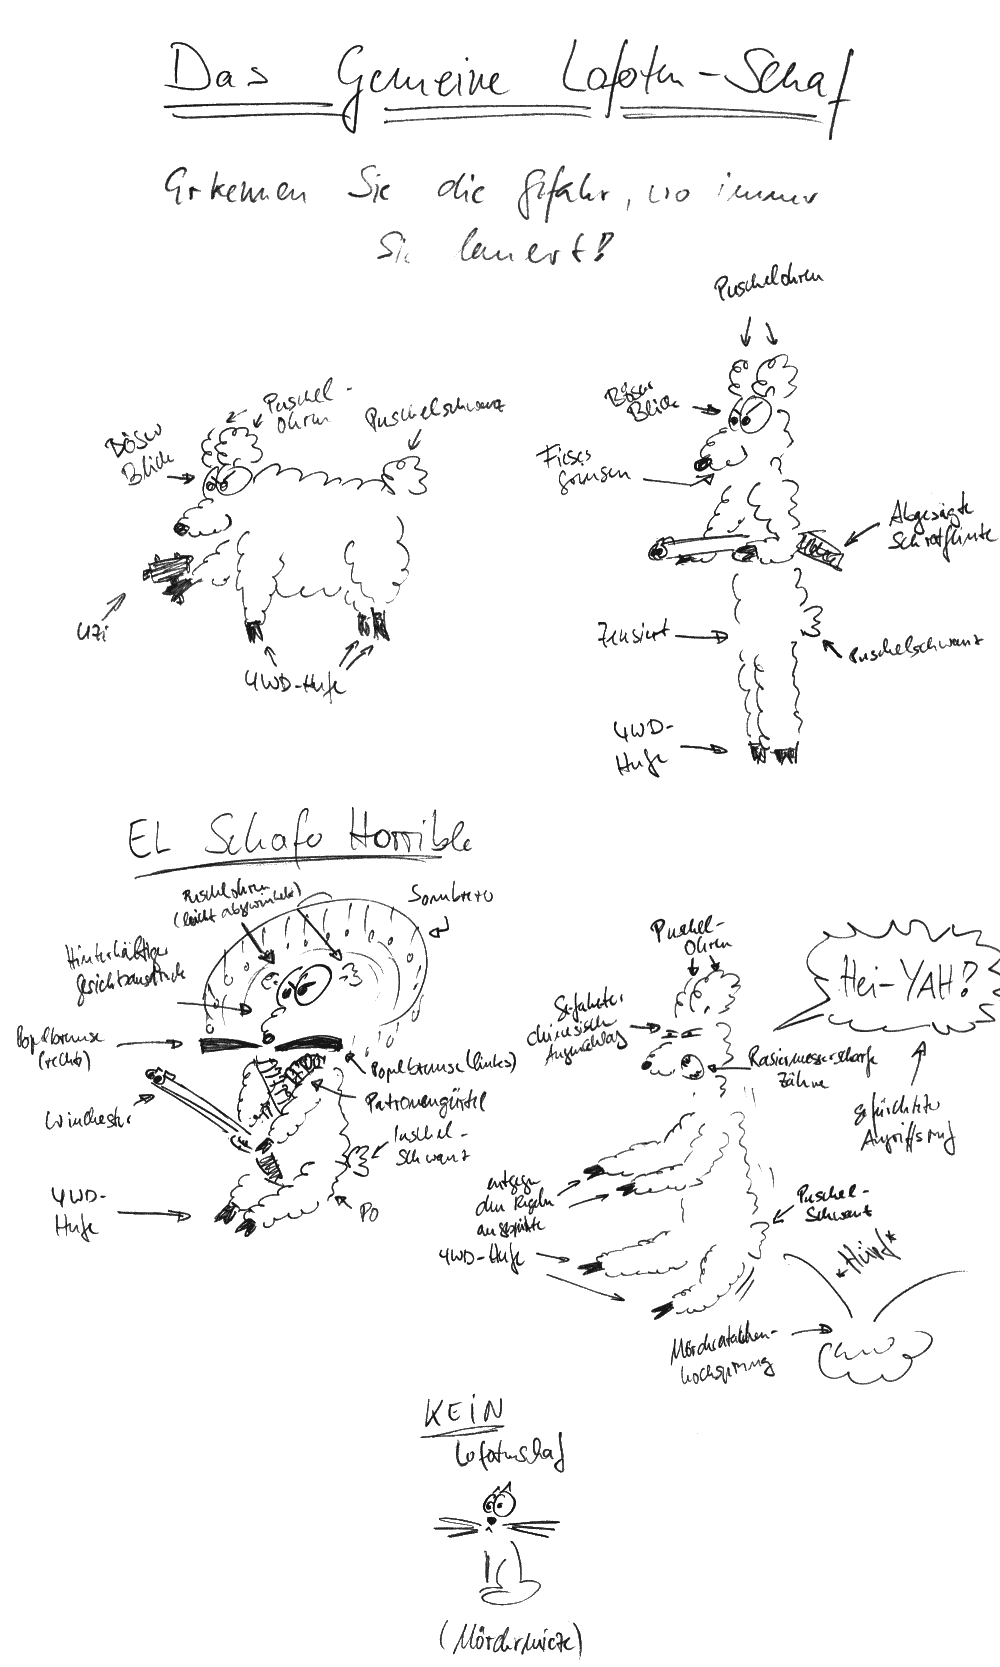 Das Gemeine Lofoten-Schaf
Erkennen Sie die Gefahr, wo immer
Sie lauert!
Böser
Blick
Puschel-
ohren
Puschelschwanz
Uzi
4WD-Hufe
Puschelohren
Böser
Blick
Fieses
Grinsen
Abgesägte
Schrotflinte
Zensiert
Puschelschwanz
4WD-
Hufe
EL Schafo Horrible
Puschelohren
(leicht abgewinkelt)
Sombrero
Hinterhältiger
Gesichtsausdruck
Popelbremse
(rechts)
Popelbremse (links)
Winchester
Patronengürtel
Puschel-
Schwanz
4WD-
Hufe
Po
Puschel-
Ohren
Hei-YAH!
Gefährlicher
chinesischer
Augenschlag
Rasiermesserscharfe
Zähne
Gefürchteter
Angriffsruf
entgegen
den Regeln
ausgeführte
4WD-Hufe
Puschel-
Schwanz
*Hüpf*
Mörderattacken-
hochsprung
KEIN
Lofotenschaf
(Mördermieze)